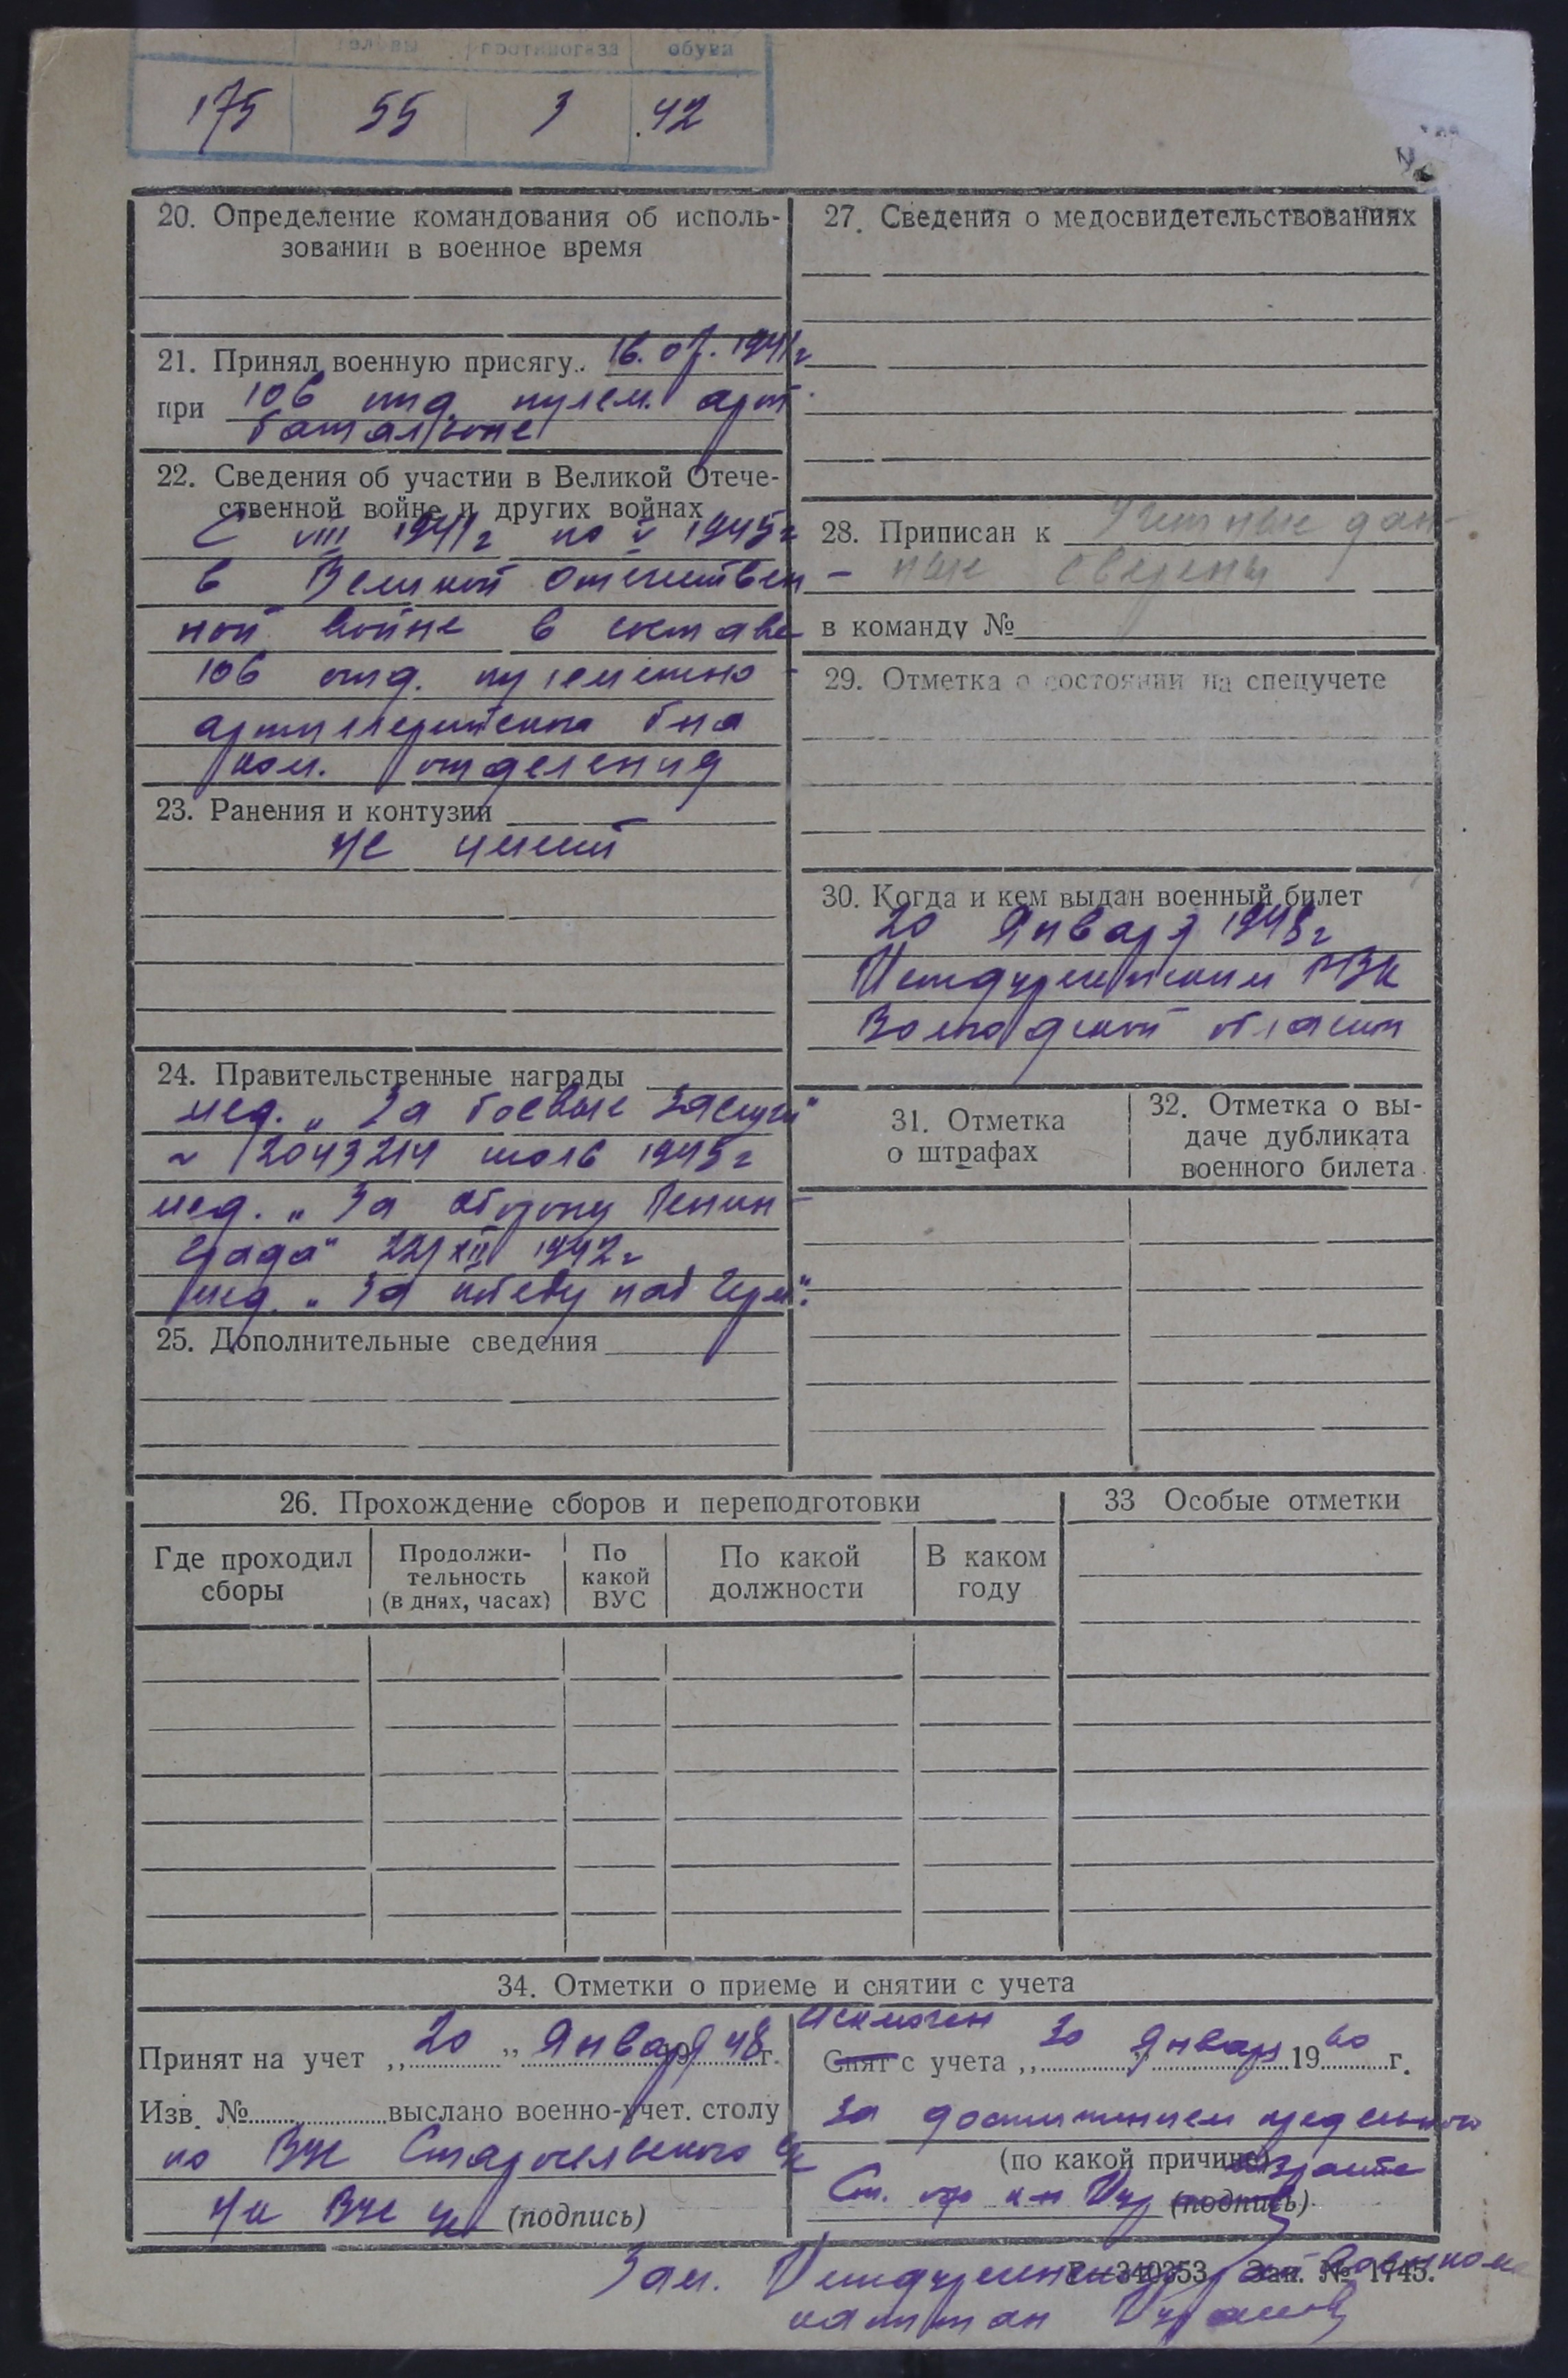 головы противогаза обуви
175 55 3 42
20. Определение командования об исполь-
зовании в военное время
21. Принял военную присягу.. 16.07.1941г
при 106 отд. пулем. арт.
батальоне
22. Сведения об участии в Великой Отече-
ственной войне и других войнах
С VIII 1941г по V 1945г
в Великой Отечествен-
ной войне в составе
106 отд. пулеметно-
артиллерийского б-на
ком. отделения
23. Ранения и контузии
не имеет
24. Правительственные награды
мед. „За боевые заслуги"
№ 2043214 июль 1945г
мед. „За оборону Ленин-
града" 22/XII 1942г
мед. „За победу над Герм".
25. Дополнительные сведения
27. Сведения о медосвидетельствованиях
28. Приписан к Учетные дан-
ные сверены
в команду №
29. Отметка о состоянии на спецучете
30. Когда и кем выдан военный билет
20 Января 1948г
Междуреченским РВК
Вологодской области
31. Отметка
о штрафах
32. Отметка о вы-
даче дубликата
военного билета
26. Прохождение сборов и переподготовки
Где проходил
сборы
Продолжи-
тельность
(в днях, часах)
По
какой
ВУС
По какой
должности
В каком
году
33 Особые отметки
34. Отметки о приеме и снятии с учета
Принят на учет „20" Января 48г.
Изв. № выслано военно-учет. столу
по ВУС Старосельского с/с
(подпись)
Исключен
Снят с учета „30" Январь 1960 г.
За достижением предельного
(по какой причине) возраста
(подпись)
Зам. Междуреченский райвоенком
Г—340353 Зак. № 1745.
капитан